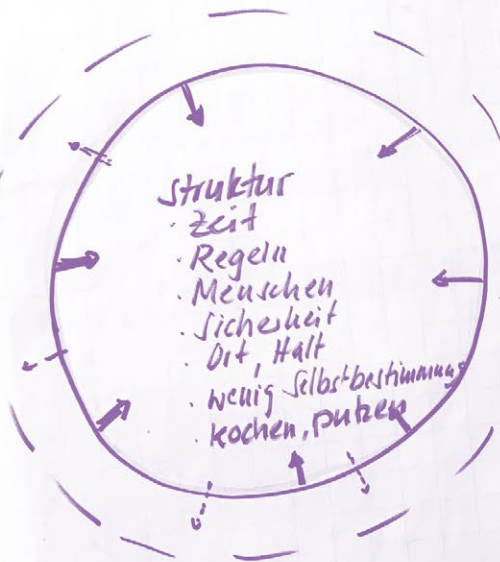 Struktur
· Zeit
· Regeln
· Menschen
· Sicherheit
· Ort, Halt
· wenig Selbstbestimmung
· kochen, putzen